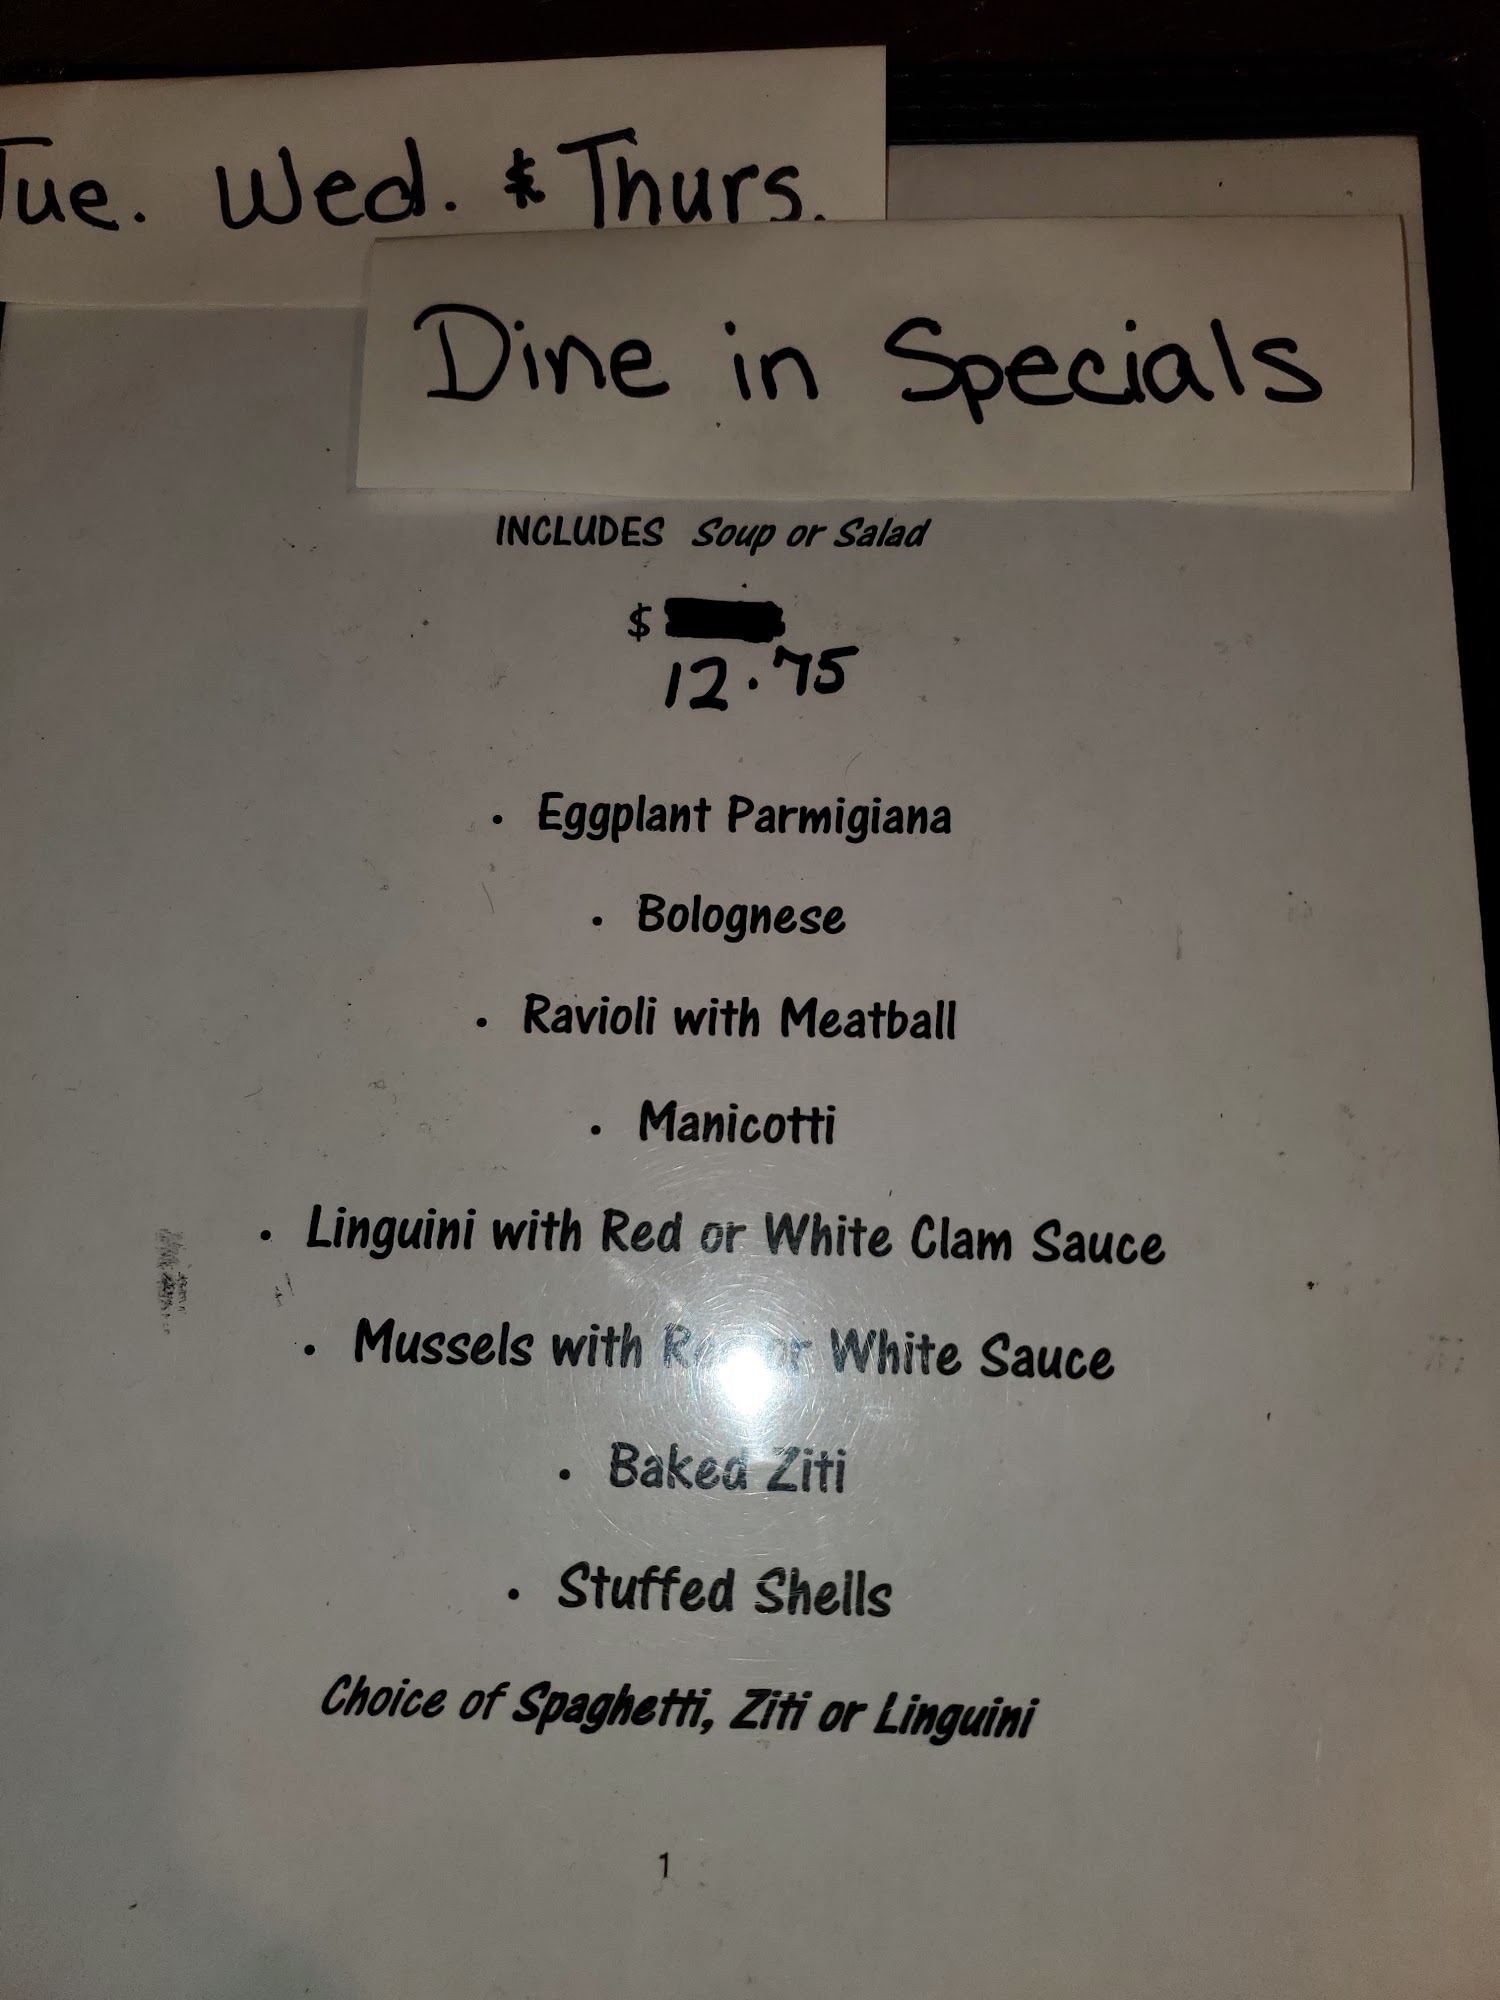 Tue. Wed. & Thurs.
Dine in Specials
INCLUDES Soup or Salad
$
12.75
• Eggplant Parmigiana
• Bolognese
• Ravioli with Meatball
• Manicotti
• Linguini with Red or White Clam Sauce
• Mussels with or White Sauce
• Baked Ziti
• Stuffed Shells
Choice of Spaghetti, Ziti or Linguini
1